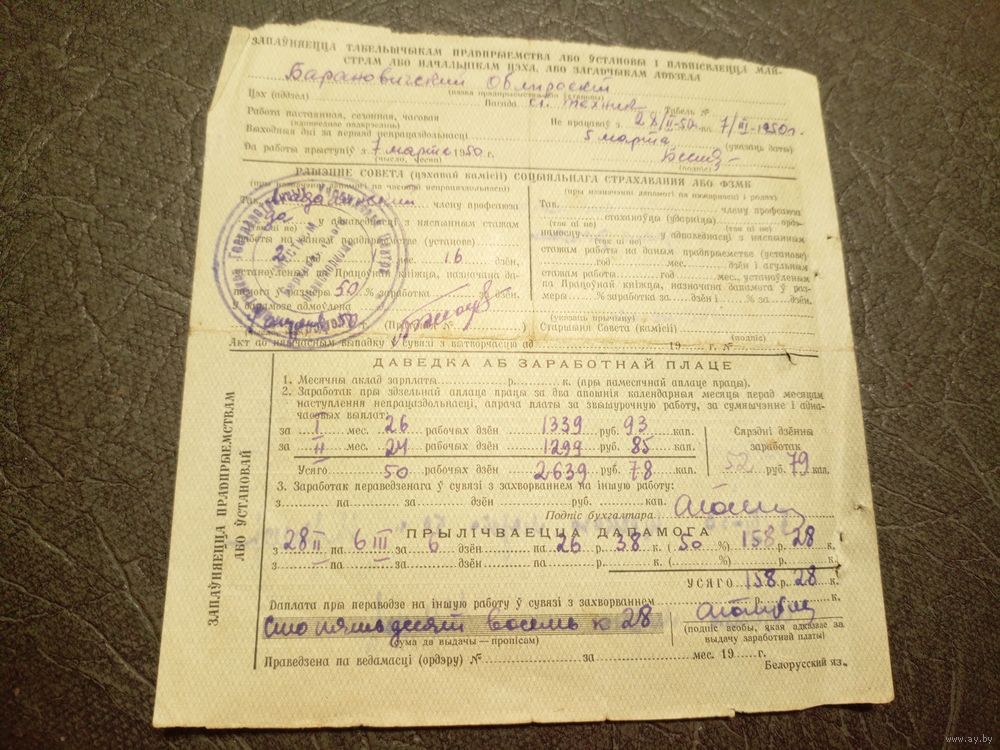 ЗАПАЎНЯЕЦЦА ТАБЕЛЬЧЫКАМ ПРАДПРЫЕМСТВА АБО ЎСТАНОВЫ І ПАДПІСВАЕЦЦА МАЙ-
СТРАМ АБО НАЧАЛЬНІКАМ ЦЭХА, АБО ЗАГАДЧЫКАМ АДДЗЕЛА
Барановичский Облпроект
Цэх (аддзел) Пасада ст. техник Табель №
Работа пастаянная, сезонная, часовая Не працаваў з 28/II-50 па 7/III-1950 г.
Выхадныя дні за перыяд непрацаздольнасці 5 марта
(указаць даты)
Да работы прыступіў з 7 марта 1950 г.
(чысло, месяц) (подпіс)
РАШЭННЕ СОВЕТА (цэхавай камісіі) СОЦЫЯЛЬНАГА СТРАХАВАННЯ АБО ФЗМК
(пры назначэнні дапамогі па часовай непрацаздольнасці) (пры назначэнні дапамогі па цяжарнасці і родах)
Так, члену профсаюза Так, члену профсаюза
у адпаведнасці з няспынным стажам стаханаўца (ударніца)
(так ці не) (так ці не)
работы на даным прадпрыемстве (установе) у адпаведнасці з няспынным
(так ці не)
2 1 16 дзён, стажам работы на даным прадпрыемстве (установе)
год мес. дзён і агульным
устаноўленым па Працоўнай кніжцы, назначана да- стажам работы год мес., устаноўленым
памога ў размеры 50 % заработка па Працоўнай кніжцы, назначана дапамога ў раз-
меры % заработка за дзён і % за дзён.
У дапамозе адмоўлена
(указаць прычыну)
г. (Пратакол № ) Старшыня Совета (камісіі)
(подпіс)
Акт аб няшчасным выпадку ў сувязі з вытворчасцю ад 19 г. №
ЗАПАЎНЯЕЦЦА ПРАДПРЫЕМСТВАМ
АБО ЎСТАНОВАЙ
ДАВЕДКА АБ ЗАРАБОТНАЙ ПЛАЦЕ
1. Месячны аклад зарплаты р. к. (пры памесячнай аплаце працы).
2. Заработак пры здзельнай аплаце працы за два апошнія календарныя месяцы перад месяцам
наступлення непрацаздольнасці, апрача платы за звышурочную работу, за сумяшчэнне і адна-
часовых выплат
за I мес. 26 рабочых дзён 1339 руб. 93 кап. Сярэдні дзённы
за II мес. 24 рабочых дзён 1299 руб. 85 кап. заработак
Усяго 50 рабочых дзён 2639 руб. 78 кап. 52 руб. 79 кап.
3. Заработак переведзенага ў сувязі з захворваннем на іншую работу:
з па за дзён руб. кап.
Подпіс бухгалтара
ПРЫЛІЧВАЕЦЦА ДАПАМОГА
з 28 II па 6 III за 6 дзён па 26 р. 38 к. (50 %) 158 р. 28 к.
з па за дзён па р. к. ( %) р. к.
УСЯГО 158 р. 28 к.
Даплата пры переводзе на іншую работу ў сувязі з захворваннем р. к.
Сто пятьдесят восемь к 28
(сума да выдачы — пропісам) (подпіс асобы, якая адказвае за
выдачу заработнай платы)
Праведзена па ведамасці (ордэру) № за мес. 19 г.
Белорусский яз.
www.ay.by